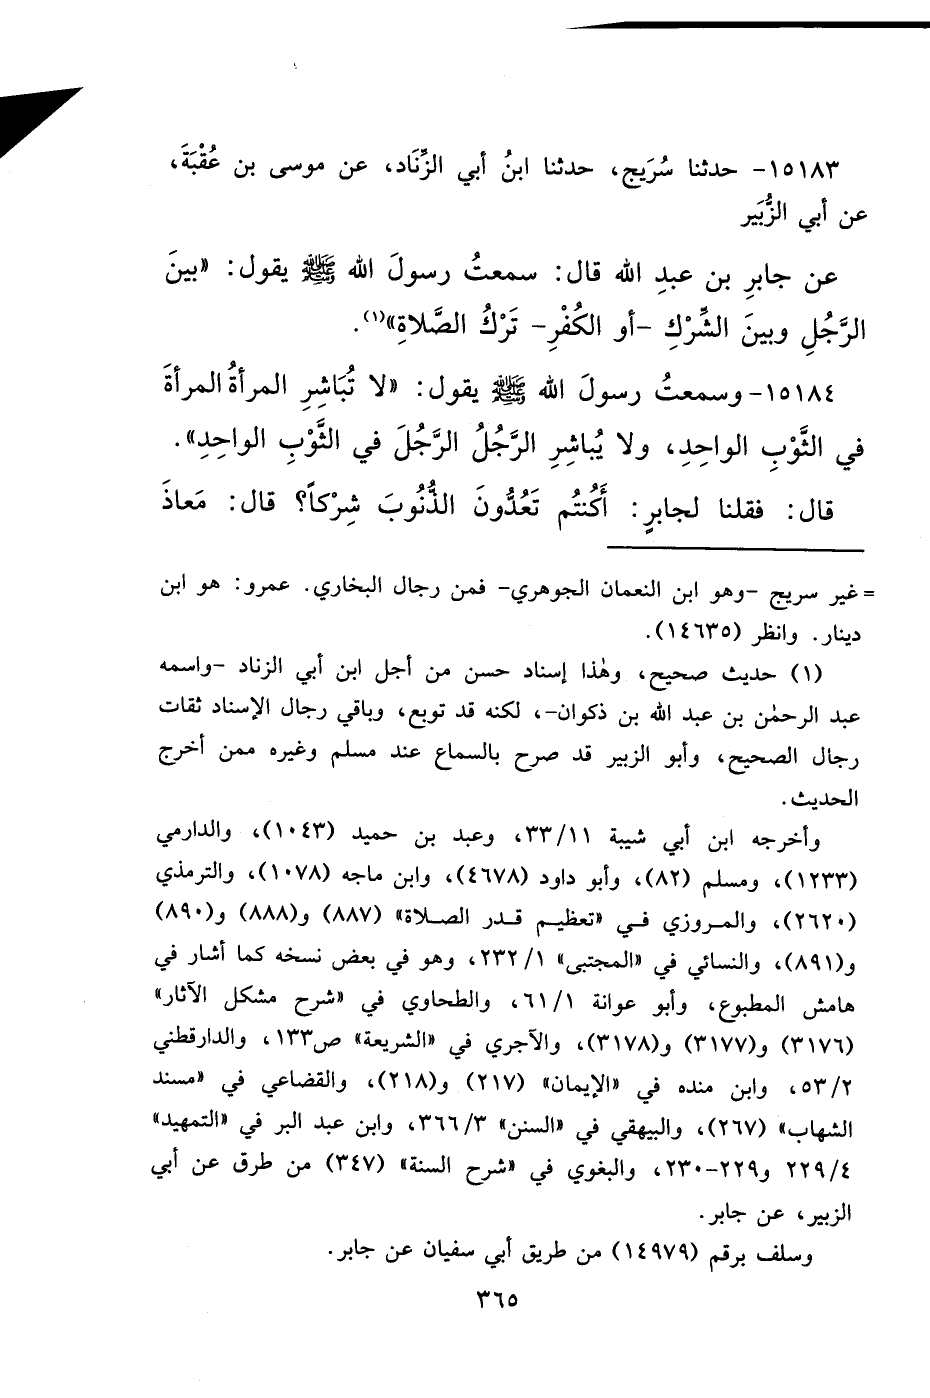 ١٥١٨٣- حدثنا سُرَيج، حدثنا ابنُ أبي الزِّنَاد، عن موسى بن عُقْبَةَ،
عن أبي الزُّبَير
عن جابرِ بن عبدِ الله قال: سمعتُ رسولَ الله ﷺ يقول: «بينَ
الرَّجُلِ وبينَ الشِّرْكِ -أو الكُفْرِ- تَرْكُ الصَّلاةِ»(١).
١٥١٨٤- وسمعتُ رسولَ الله ﷺ يقول: «لا تُبَاشِرِ المرأةُ المرأةَ
في الثَّوْبِ الواحِدِ، ولا يُباشِرِ الرَّجُلُ الرَّجُلَ في الثَّوْبِ الواحِدِ».
قال: فقلنا لجابرٍ: أَكُنتُم تَعُدُّونَ الذُّنُوبَ شِرْكاً؟ قال: مَعاذَ
= غير سريج -وهو ابن النعمان الجوهري- فمن رجال البخاري. عمرو: هو ابن
دينار. وانظر (١٤٦٣٥).
(١) حديث صحيح، وهٰذا إسناد حسن من أجل ابن أبي الزناد -واسمه
عبد الرحمٰن بن عبد الله بن ذكوان-، لكنه قد توبع، وباقي رجال الإسناد ثقات
رجال الصحيح، وأبو الزبير قد صرح بالسماع عند مسلم وغيره ممن أخرج
الحديث.
وأخرجه ابن أبي شيبة ٣٣/١١، وعبد بن حميد (١٠٤٣)، والدارمي
(١٢٣٣)، ومسلم (٨٢)، وأبو داود (٤٦٧٨)، وابن ماجه (١٠٧٨)، والترمذي
(٢٦٢٠)، والمروزي في «تعظيم قدر الصلاة» (٨٨٧) و(٨٨٨) و(٨٩٠)
و(٨٩١)، والنسائي في «المجتبى» ٢٣٢/١، وهو في بعض نسخه كما أشار في
هامش المطبوع، وأبو عوانة ٦١/١، والطحاوي في «شرح مشكل الآثار»
(٣١٧٦) و(٣١٧٧) و(٣١٧٨)، والآجري في «الشريعة» ص١٣٣، والدارقطني
٥٣/٢، وابن منده في «الإيمان» (٢١٧) و(٢١٨)، والقضاعي في «مسند
الشهاب» (٢٦٧)، والبيهقي في «السنن» ٣٦٦/٣، وابن عبد البر في «التمهيد»
٢٢٩/٤ و٢٢٩-٢٣٠، والبغوي في «شرح السنة» (٣٤٧) من طرق عن أبي
الزبير، عن جابر.
وسلف برقم (١٤٩٧٩) من طريق أبي سفيان عن جابر.
٣٦٥